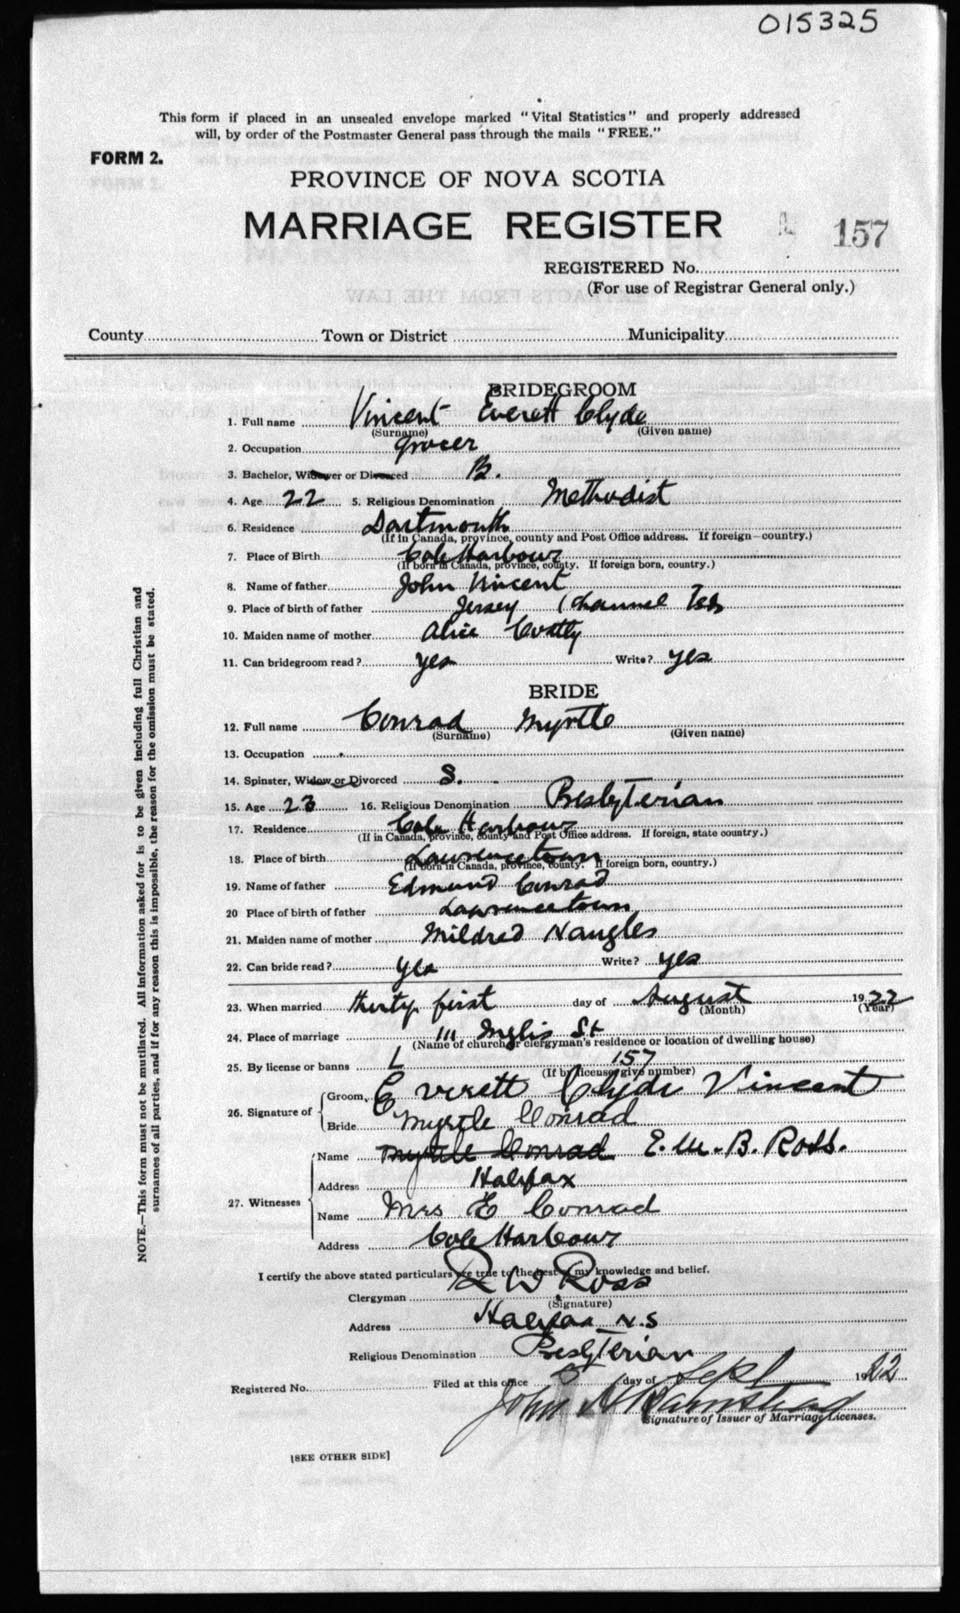 015325
This form if placed in an unsealed envelope marked "Vital Statistics" and properly addressed
will, by order of the Postmaster General pass through the mails "FREE."
FORM 2.
PROVINCE OF NOVA SCOTIA
MARRIAGE REGISTER 157
REGISTERED No.
(For use of Registrar General only.)
County Town or District Municipality
BRIDEGROOM
1. Full name Vincent Everett Clyde
(Surname) (Given name)
2. Occupation grocer
3. Bachelor, Widower or Divorced B.
4. Age 22 5. Religious Denomination Methodist
6. Residence Dartmouth
(If in Canada, province, county and Post Office address. If foreign—country.)
7. Place of Birth Cole Harbour
(If born in Canada, province, county. If foreign born, country.)
8. Name of father John Vincent
9. Place of birth of father Jersey (Channel Isls
10. Maiden name of mother Alice
11. Can bridegroom read? yes Write? yes
BRIDE
12. Full name Conrad Myrtle
(Surname) (Given name)
13. Occupation
14. Spinster, Widow or Divorced S.
15. Age 23 16. Religious Denomination Presbyterian
17. Residence Cole Harbour
(If in Canada, province, county and Post Office address. If foreign, state country.)
18. Place of birth Lawrencetown
(If born in Canada, province, county. If foreign born, country.)
19. Name of father Edmund Conrad
20 Place of birth of father Lawrencetown
21. Maiden name of mother Mildred Naugles
22. Can bride read? yes Write? yes
23. When married thirty first day of August 1922
(Month) (Year)
24. Place of marriage 111 Inglis St
(Name of church or clergyman's residence or location of dwelling house)
25. By license or banns L 157
(If by license give number)
26. Signature of Groom, Everett Clyde Vincent
Bride Myrtle Conrad
27. Witnesses Name Myrtle Conrad E. M. B. Ross.
Address Halifax
Name Mrs E Conrad
Address Cole Harbour
I certify the above stated particulars are true to the best of my knowledge and belief.
Clergyman R W Ross
(Signature)
Address Halifax N.S
Religious Denomination Presbyterian
Registered No. Filed at this office 5 day of Sept 1922
John
Signature of Issuer of Marriage Licenses.
[SEE OTHER SIDE]
NOTE.—This form must not be mutilated. All information asked for is to be given including full Christian and
surnames of all parties, and if for any reason this is impossible, the reason for the omission must be stated.